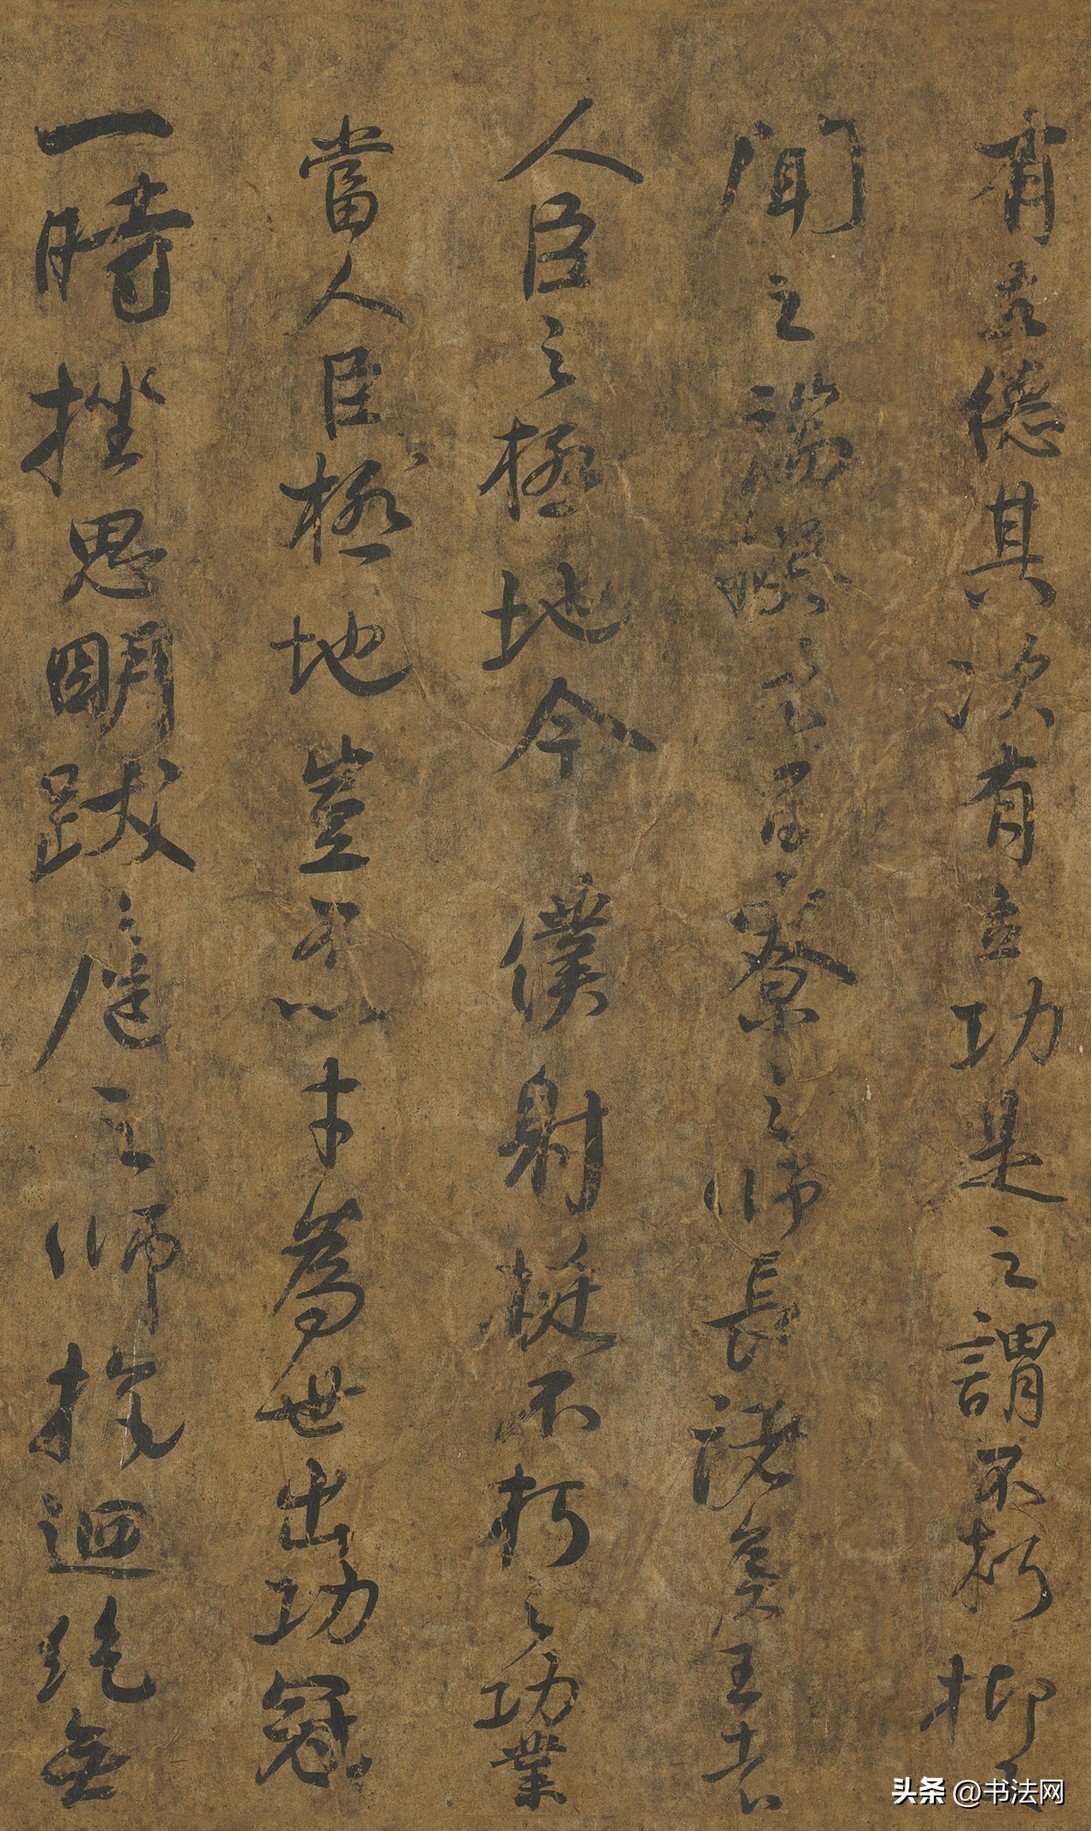 有立德其次有立功是之謂不朽抑又
聞之端揆者百寮之師長諸矦王者
人臣之極地今僕射挺不朽之功業
當人臣極地豈不以才為世出功冠
一時挫思明跋扈之師抗迴紇無
头条 @书法网